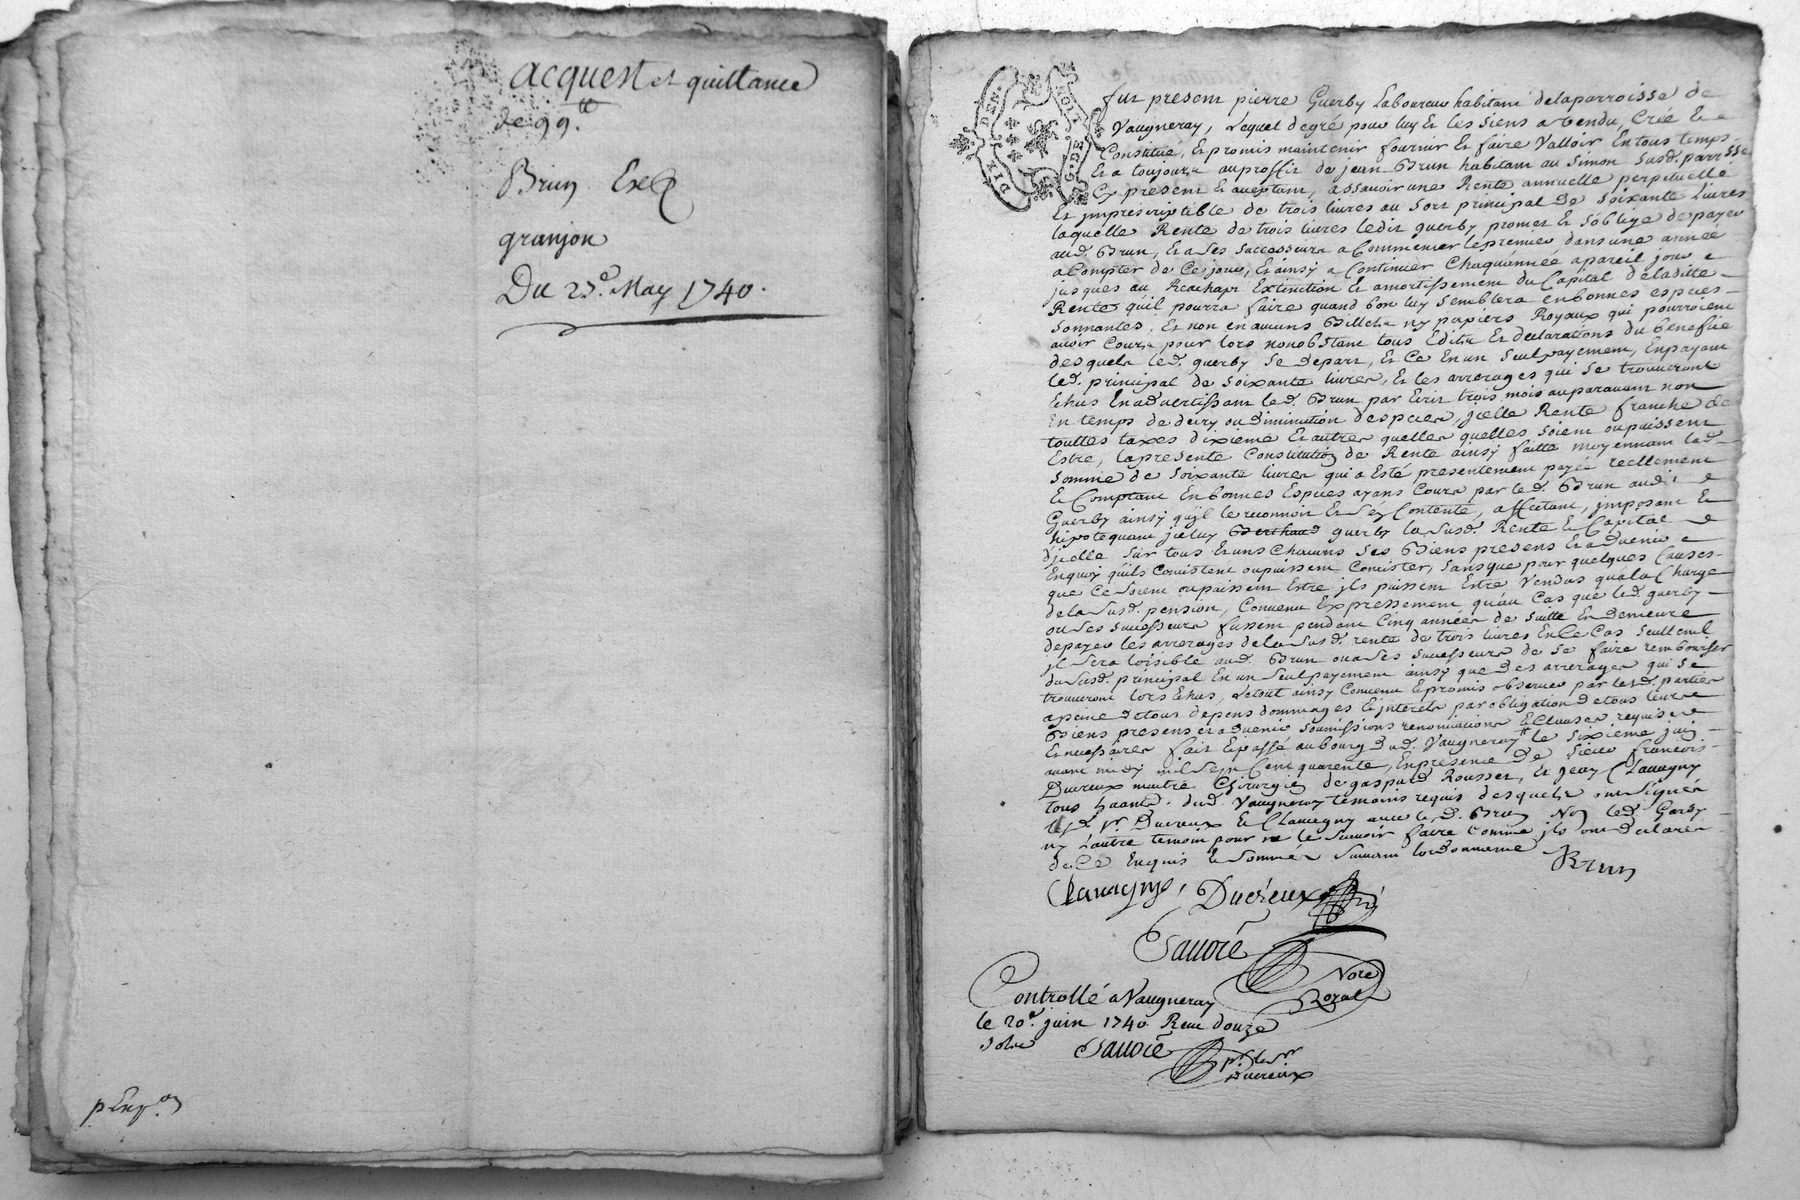 acquest et quittance
de 99.lt
Brun
granjon
Du 25.e May 1740.
p Exp.on
DIX DEN.
G. DE LION
fut present pierre Guerby Laboureur habitant de la parroisse de
Vaugneray, Lequel de gré pour luy Et les siens a vendu, Créé Et
Constitué, Et promis maintenir fournir Et faire Valloir En tous temps
Et a toujours au proffit de jean Brun habitant au Simon susd. parrisse
Cy present Et aceptant, assavoir une Rente annuelle perpetuelle
Et jmprescriptible de trois livres au sort principal de soixante Livres
laquelle Rente de trois livres ledit guerby promet Et soblige de payer
aud. Brun, Et a ses successeurs a Commencer le premier dans une année
a Compter de Ce jour, Et ainsy a Continuer Chaquannée a pareil jour
jusques au Reachapt Extinction Et amortissement du Capital de laditte
Rente qu'il pourra faire quand bon luy semblera en bonnes especes
sonnantes, Et non en aucuns Billets ny papiers Royaux qui pourroient
avoir Cours pour lors nonobstant tous Edits Et declarations du benefice
desquels led. guerby se depart, Et Ce En un seul payement, En payant
led. principal de soixante livres, Et les arrerages qui se trouveront
Echus En advertissant led. Brun par Ecrit trois mois auparavant non
En temps de decry ou diminution despeces, jcelle Rente franche de
touttes taxes dixieme Et autres quelles quelles soient ou puissent
Estre, la presente Constitution de Rente ainsy faitte moyennant lad.
somme de soixante livres qui a Esté presentement payée reellement
Et Comptant En bonnes Especes ayans Cours par led. Brun aud.
Guerby ainsy qu'jl le reconnoit Et s'en Contente, affectant, jmposant Et
hipotequant jceluy guerby la susd. Rente Et Capital
d'jcelle sur tous Et uns Chacuns ses Biens presens Et a venir
En quoy qu'ils Consistent ou puissent Consister, sans que pour quelques Causes
que Ce soient ou puissent Estre jls puissent Estre Vendus qu'a la Charge
de la susd. pension, Convenu Expressement qu'au Cas que led. guerby
ou ses successeurs fussent pendant Cinq années de suitte En demeure
de payer les arrerages de la susd. rente de trois livres En Ce Cas seullemt
jl sera loisible aud. Brun ou a ses successeurs de se faire rembourser
du susd. principal En un seul payement ainsy que des arrerages qui se
trouveront lors Echus, Le tout ainsy Convenu Et promis observer par lesd. parties
a peine de tous depens dommages Et jnterets par obligation de tous leurs
Biens presens et a venir soumissions renonciations Et Clauses requises
Et necessaires fait Et passé au bourg dud. Vaugneray le sixieme juin
avant midy mil sept Cent quarente, En presence de sieur francois
Ducreux maitre Chirurgien de gaspard Rousset, Et jean Clavagny
tous haants. dud. Vaugneray temoins requis desquels ont signés
Ducreux Et Clavagny avec led. Brun Non led. Garby
ny l'autre temoin pour ne le scavoir faire comme jls ont declarés
de Ce Enquis Et sommés suivant lordonnance
Brun
Clavagny, Ducreux
Sauvré
Nore
Royal
Controllé a Vaugneray
le 20.e juin 1740. Reçu douze
sols
Sauvré
pr. le Sr
Ducreux